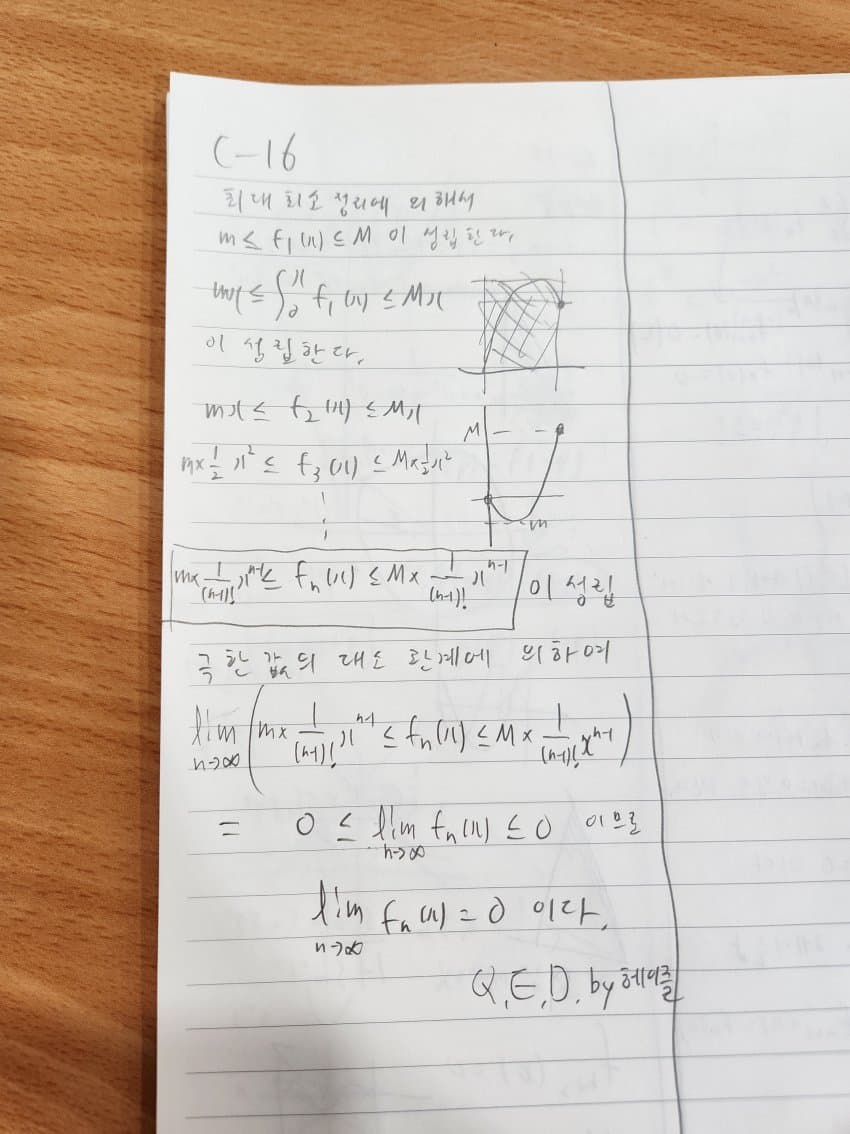 C-16
최대 최소 정리에 의해서
m ≤ f₁(x) ≤ M 이 성립한다.
mx ≤ ∫₀ˣ f₁(x) ≤ Mx
이 성립한다.
mx ≤ f₂(x) ≤ Mx
M
m× 1/2 x² ≤ f₃(x) ≤ M× 1/2 x²
m
⋮
m× 1/(n-1)! xⁿ⁻¹ ≤ fₙ(x) ≤ M× 1/(n-1)! xⁿ⁻¹ 이 성립
극한값의 대소 관계에 의하여
lim n→∞ (m× 1/(n-1)! xⁿ⁻¹ ≤ fₙ(x) ≤ M× 1/(n-1)! xⁿ⁻¹)
= 0 ≤ lim n→∞ fₙ(x) ≤ 0 이므로
lim n→∞ fₙ(x) = 0 이다.
Q.E.D. by 헤이즐